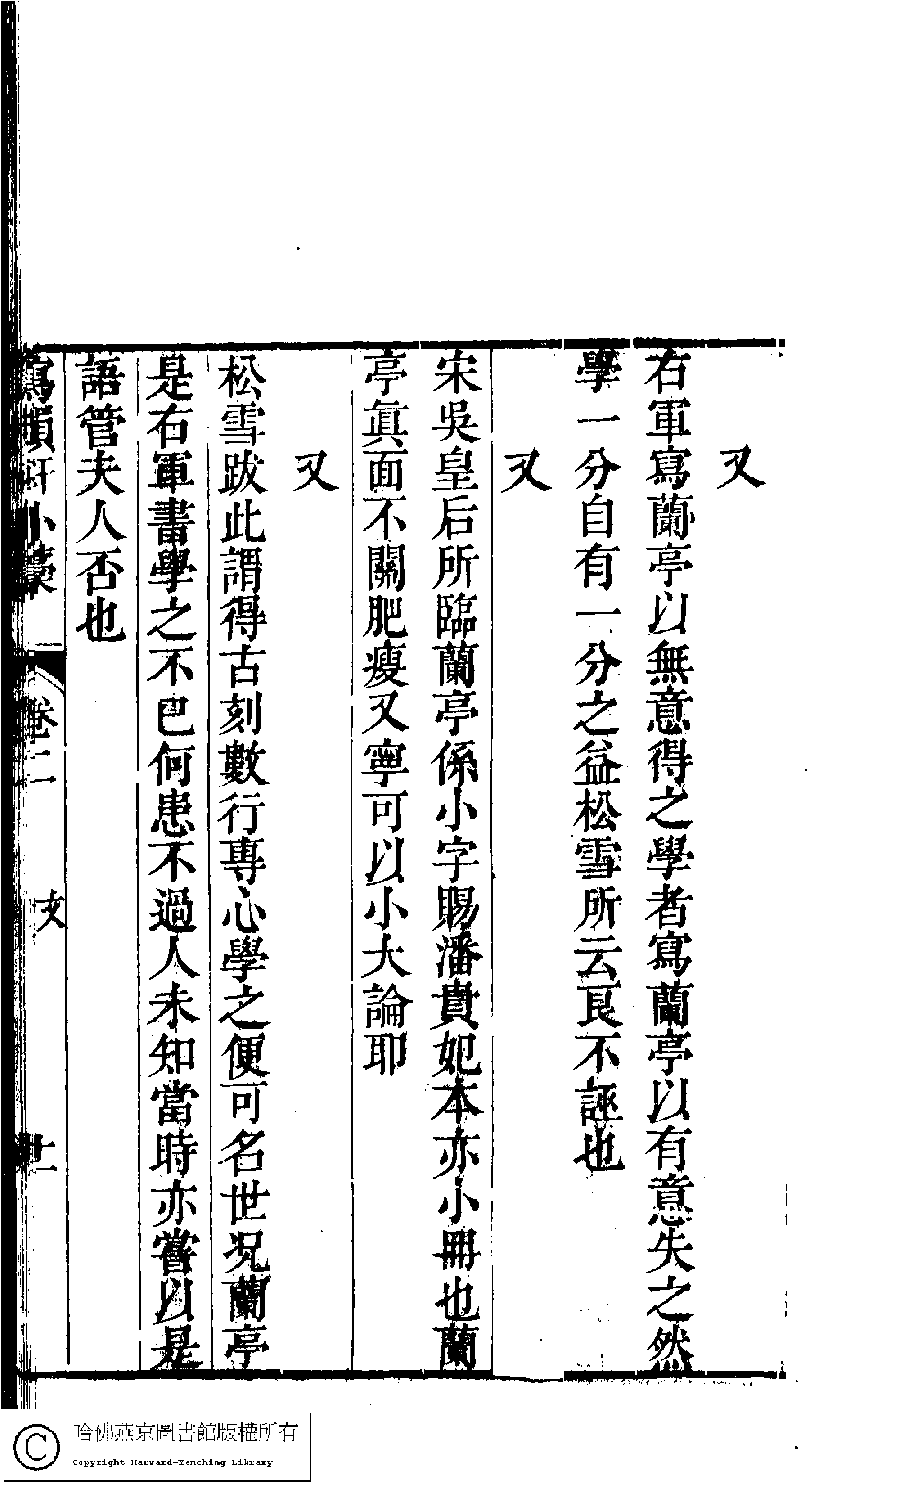 又
右軍寫蘭亭以無意得之學者寫蘭亭以有意失之然
學一分自有一分之益松雪所云良不誣也
又
宋吳皇后所臨蘭亭係小字賜潘貴妃本亦小冊也蘭
亭眞面不關肥瘦又寧可以小大論耶
又
松雪跋此謂得古刻數行專心學之便可名世况蘭亭
是右軍書學之不巳何患不過人未知當時亦嘗以是
語管夫人否也
軒小稾 卷二 文
哈佛燕京圖書館版權所有
Copyright Harvard-Yenching Library